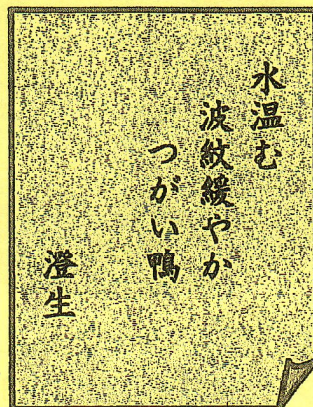 水温む
波紋緩やか
つがい鴨
澄生